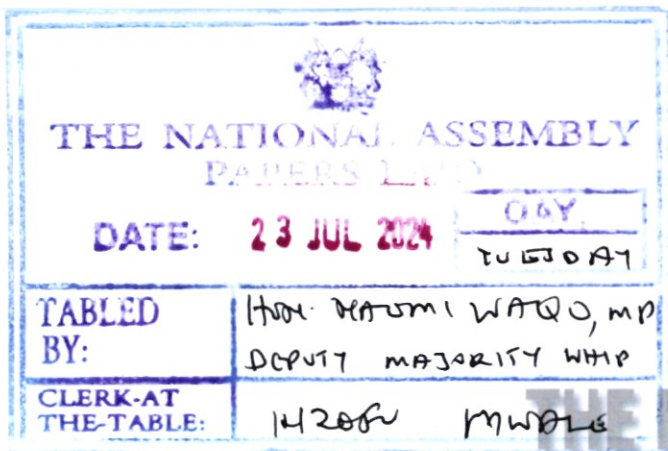 THE NATIONAL ASSEMBLY
PAPERS LAID
DATE: 23 JUL 2024
DAY.
TUESDAY
TABLED BY:
HON. NAOMI WAQO, MP
DEPUTY MAJORITY WHIP
CLERK-AT THE-TABLE:
MWALE
THE